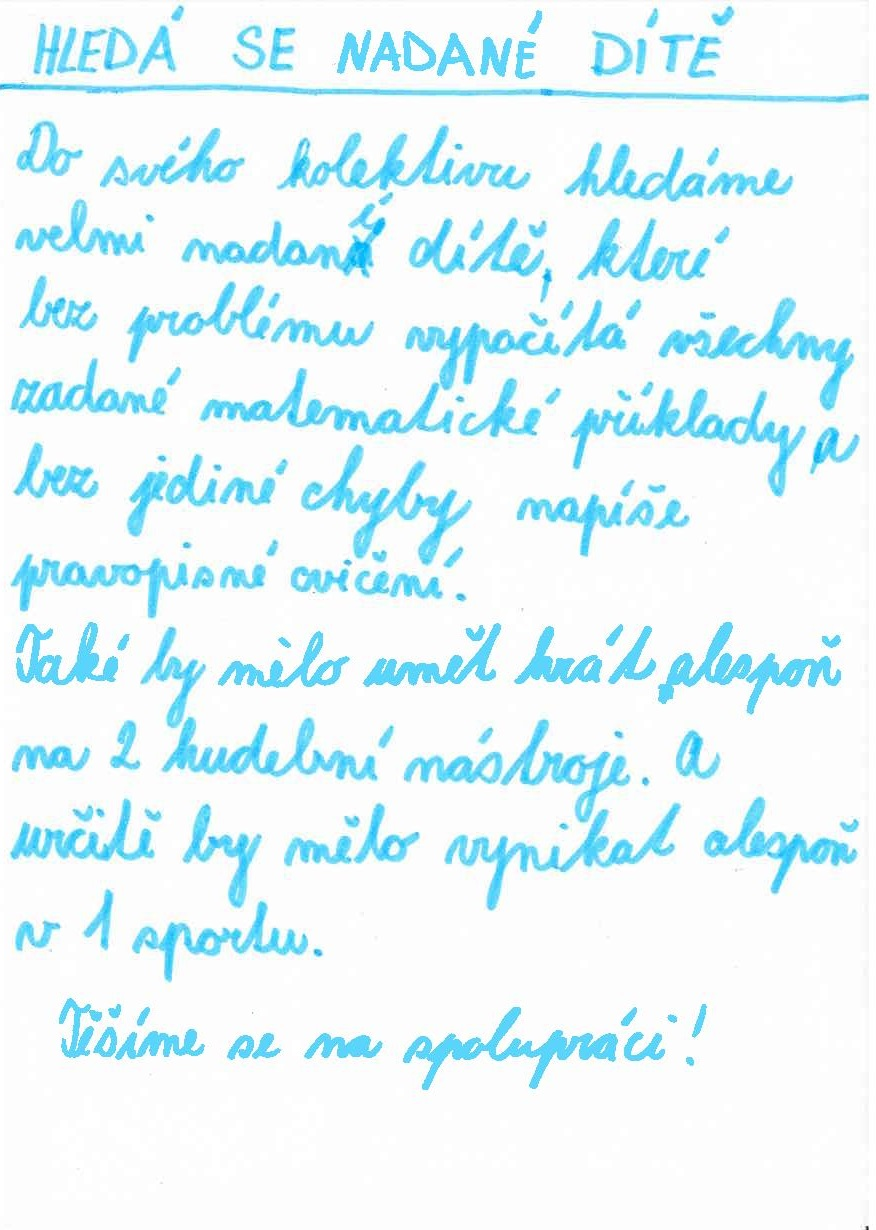 HLEDÁ SE NADANÉ DÍTĚ
Do svého kolektivu hledáme
velmi nadané dítě, které
bez problému vypočítá všechny
zadané matematické příklady a
bez jediné chyby napíše
pravopisné cvičení.
Také by mělo umět hrát alespoň
na 2 hudební nástroje. A
určitě by mělo vynikat alespoň
v 1 sportu.
Těšíme se na spolupráci!